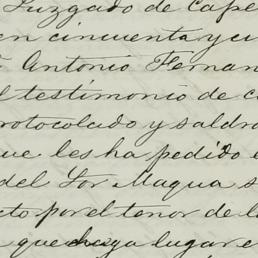 Juzgado de Cape
en cincuenta y cu
Antonio Fernan
l testimonio de c
rotocolado y saldr
ue les ha pedido e
del Sor Maqua s
cto por el tenor de l
que haya lugar e